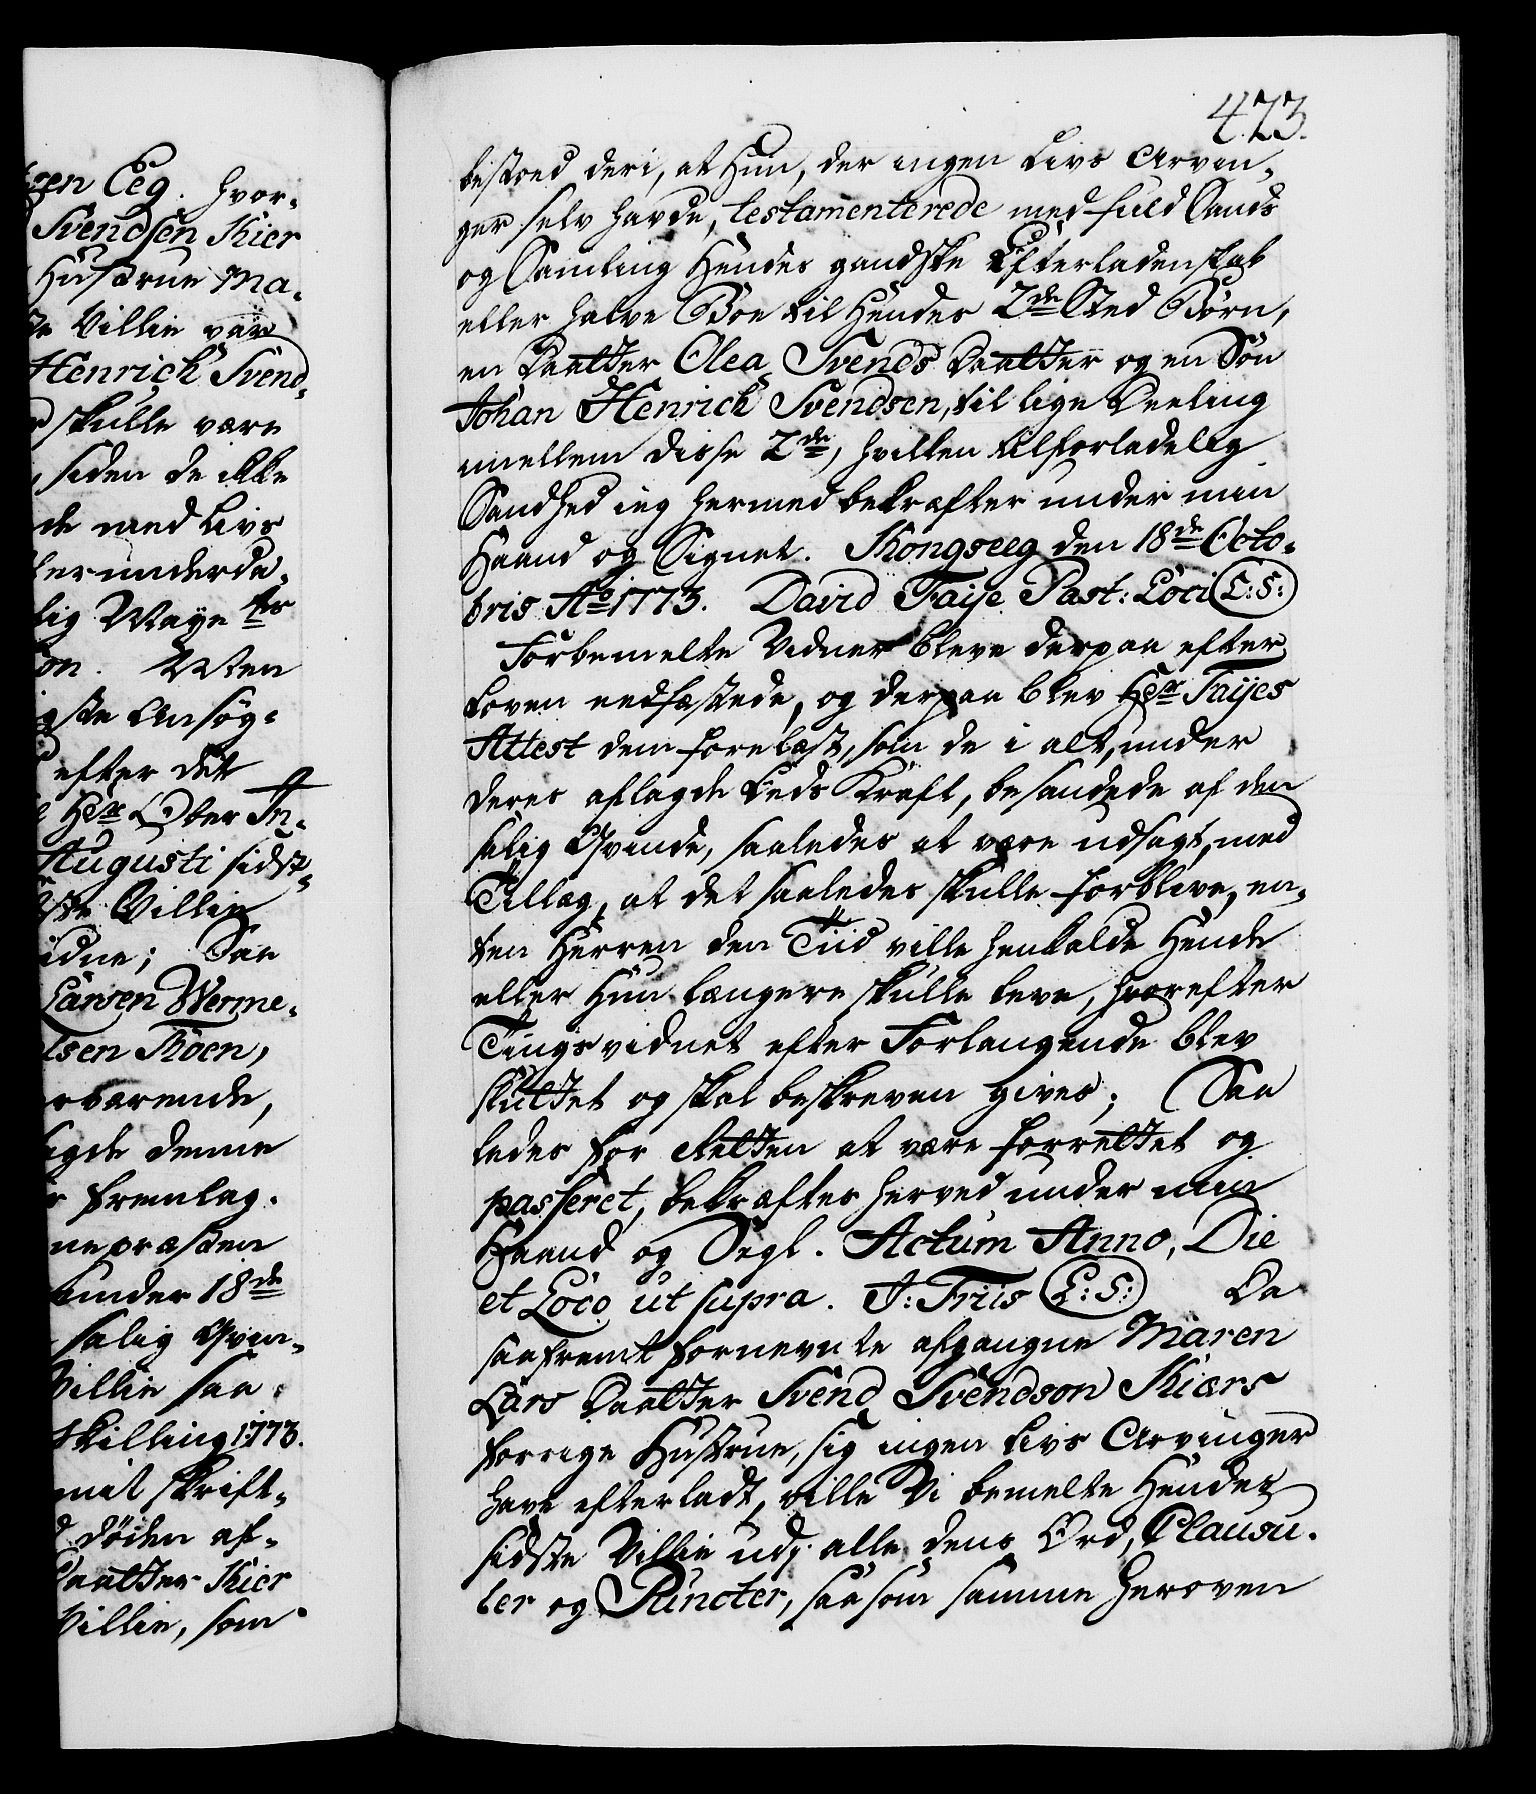 gen Eeg. hvor-
Svendsen Kier
Hustrue Ma-
te Villie var
Henrich Svend-
skulle være
, siden de ikke
de med Livs
Herunderda-
lig Maye ts
on. Men
gste Ansög-
efter det
Hr Peter In-
Augusti sidst-
ste Villie
idne; Saa
Larsen Werme-
lsen Moen,
rværende,
agde denne
r fremlag-
nepræsten
under 18de
salig Qvin-
Villie saa-
Skilling 1773.
mit skrift-
d döden af-
Daatter Kier
Villie, som
423.
bestoed deri, at Hun, der ingen Livs Arvin-
ger selv havde, testamenterede med fuld Sands
og Samling Hendes gandske Efterladenskab
eller halve Boe til Hendes 2de Sted Börn,
en Daatter Olea Svends Daatter og en Sön
Johan Henrich Svendsen, til lige Deeling
imellem disse 2de, hvilken tilforladelig
Sandhed ieg hermed bekræfter under min
Haand og Signet. Kongseeg den 18de Octo-
bris Ao 1773. David Faije Past: Loci (L:S:)
Forbemelte Vidner bleve derpaa efter
Loven eedfæstede, og derpaa blev Hr Faijes
Attest dem forelæst, som de i alt, under
deres aflagde Eeds Kraft, besandede af den
salig Qvinde, saaledes at være udsagt, med
Tillæg, at det saaledes skulle forblive, en-
ten Herren den Tiid ville henkalde Hende
eller Hun længere skulle leve, hvorefter
Tingsvidnet efter Forlangende blev
sluttet og skal beskreven gives; Saa
ledes for Retten at være forrettet og
passeret, bekræftes herved under min
Haand og Segl. Actum Anno, Die
et Loco ut supra. J: Friis (L:S:) Da
saafremt fornevnte afgangne Maren
Lars Daatter Svend Svendson Kiærs
forrige Hustrue, sig ingen Livs Arvinger
have efterladt, ville Vi bemelte Hendes
sidste Villie udj alle dens Ord, Clausu-
ler og Puncter, saasom samme heroven